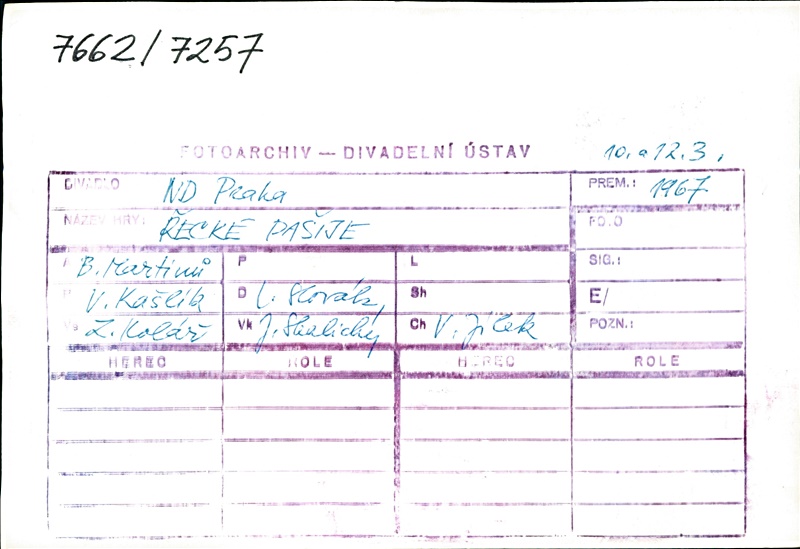 7662/7257
FOTOARCHIV — DIVADELNÍ ÚSTAV 10. a 12.3.
DIVADLO ND Praha PREM.: 1967
NÁZEV HRY: ŘECKÉ PAŠIJE
B. Martinů P L SIG.:
V. Kašlík D L. Slovák Sh E/
Z. Kolář Vk J. Skalický Ch V. Jílek POZN.:
HEREC ROLE HEREC ROLE